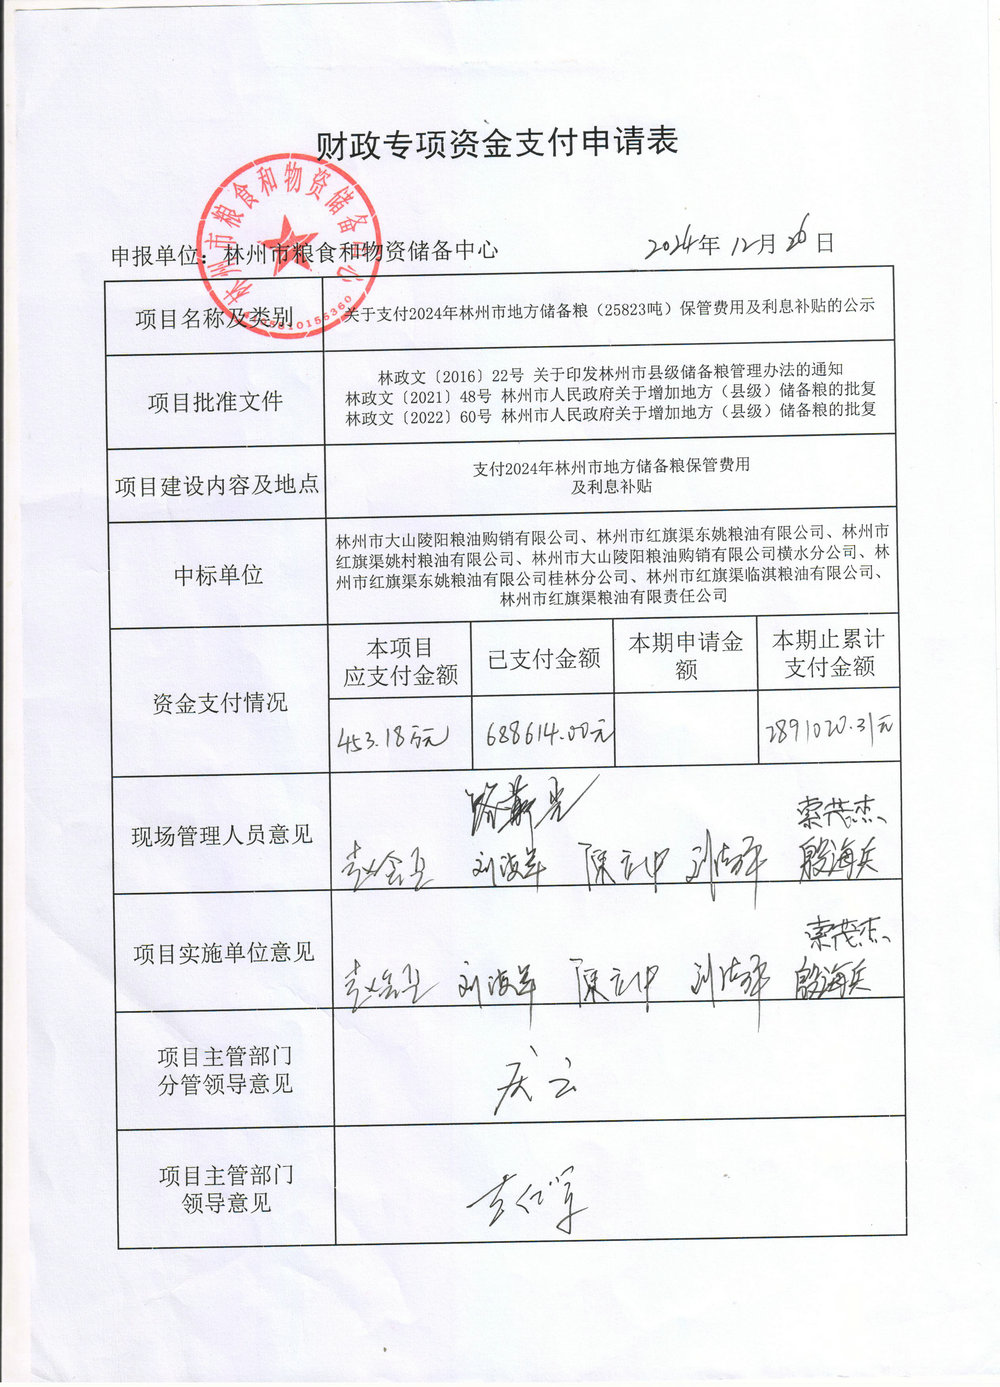 财政专项资金支付申请表
林州市粮食和物资储备中心
申报单位：林州市粮食和物资储备中心
2024年12月26日
项目名称及类别
关于支付2024年林州市地方储备粮（25823吨）保管费用及利息补贴的公示
项目批准文件
林政文〔2016〕22号 关于印发林州市县级储备粮管理办法的通知
林政文〔2021〕48号 林州市人民政府关于增加地方（县级）储备粮的批复
林政文〔2022〕60号 林州市人民政府关于增加地方（县级）储备粮的批复
项目建设内容及地点
支付2024年林州市地方储备粮保管费用
及利息补贴
中标单位
林州市大山陵阳粮油购销有限公司、林州市红旗渠东姚粮油有限公司、林州市
红旗渠姚村粮油有限公司、林州市大山陵阳粮油购销有限公司横水分公司、林
州市红旗渠东姚粮油有限公司桂林分公司、林州市红旗渠临淇粮油有限公司、
林州市红旗渠粮油有限责任公司
资金支付情况
本项目
应支付金额
已支付金额
本期申请金
额
本期止累计
支付金额
453.18万元
688614.00元
2891020.31元
现场管理人员意见
索茂杰
刘海羊 陈立中 殷海兵
项目实施单位意见
索茂杰
刘海羊 陈立中 殷海兵
项目主管部门
分管领导意见
庆云
项目主管部门
领导意见